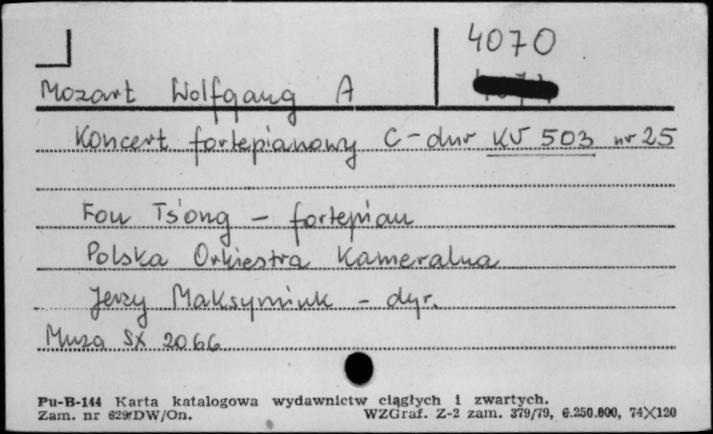 4070
Mozart Wolfgang A
Koncert fortepianowy C-dur KV 503 nr 25
Fou Ts'ong - fortepian
Polska Orkiestra Kameralna
Jerzy Maksymiuk - dyr.
Muza SX 2066
Pu-B-144 Karta katalogowa wydawnictw ciągłych i zwartych.
Zam. nr 629/DW/On. WZGraf. Z-2 zam. 379/79, 6.250.000, 74X120